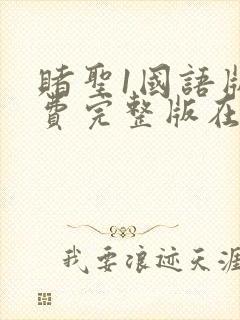 賭聖1國語版
費完整版在
我要浪迹天涯